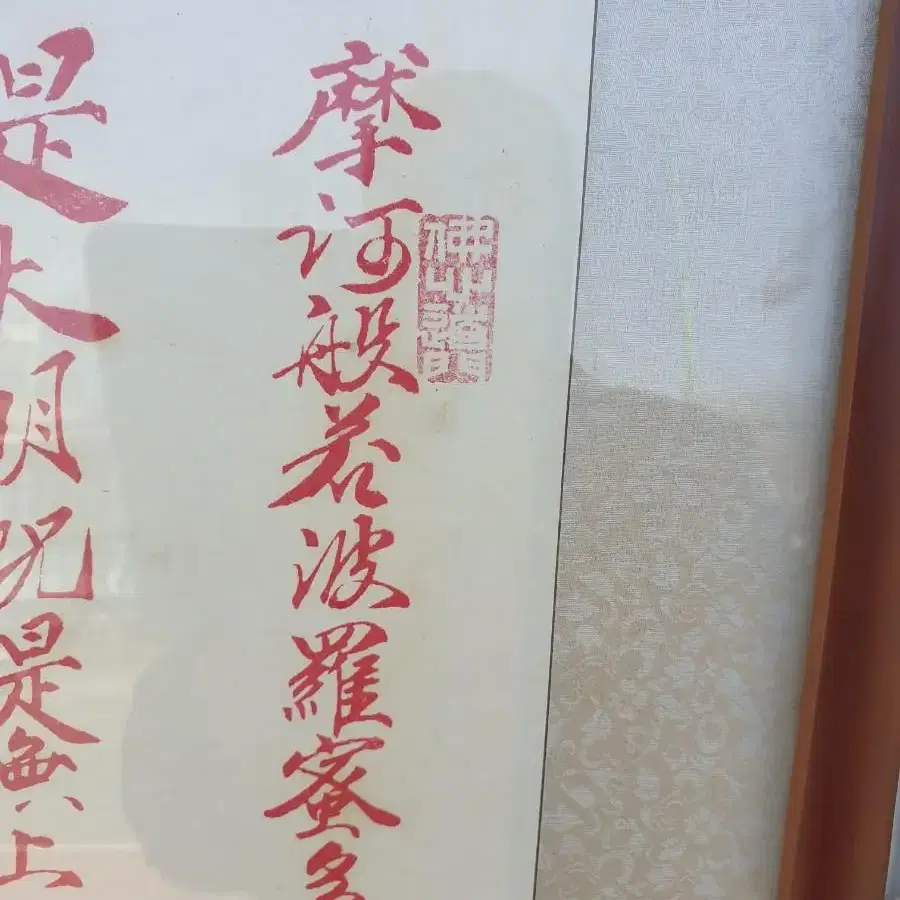 摩訶般若波羅蜜多
是大明呪是無上